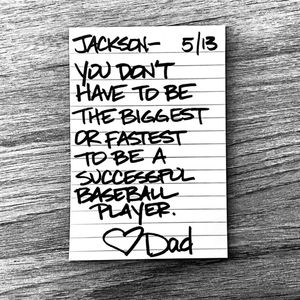 JACKSON— 5/13
YOU DON'T
HAVE TO BE
THE BIGGEST
OR FASTEST
TO BE A
SUCCESSFUL
BASEBALL
PLAYER.
♡Dad